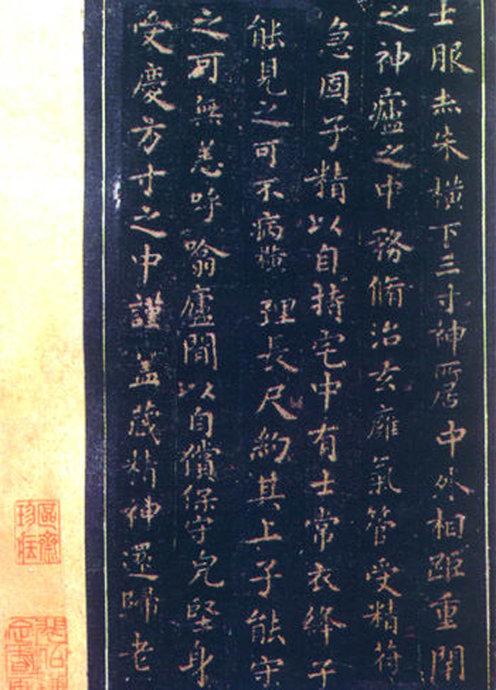 士服赤朱横下三寸神所居中外相距重閇
之神廬之中務脩治玄廱氣管受精符
急固子精以自持宅中有士常衣絳子
能見之可不病横理長尺約其上子能守
之可無恙呼噏廬間以自償保守完堅身
受慶方寸之中謹盖藏精神還歸老